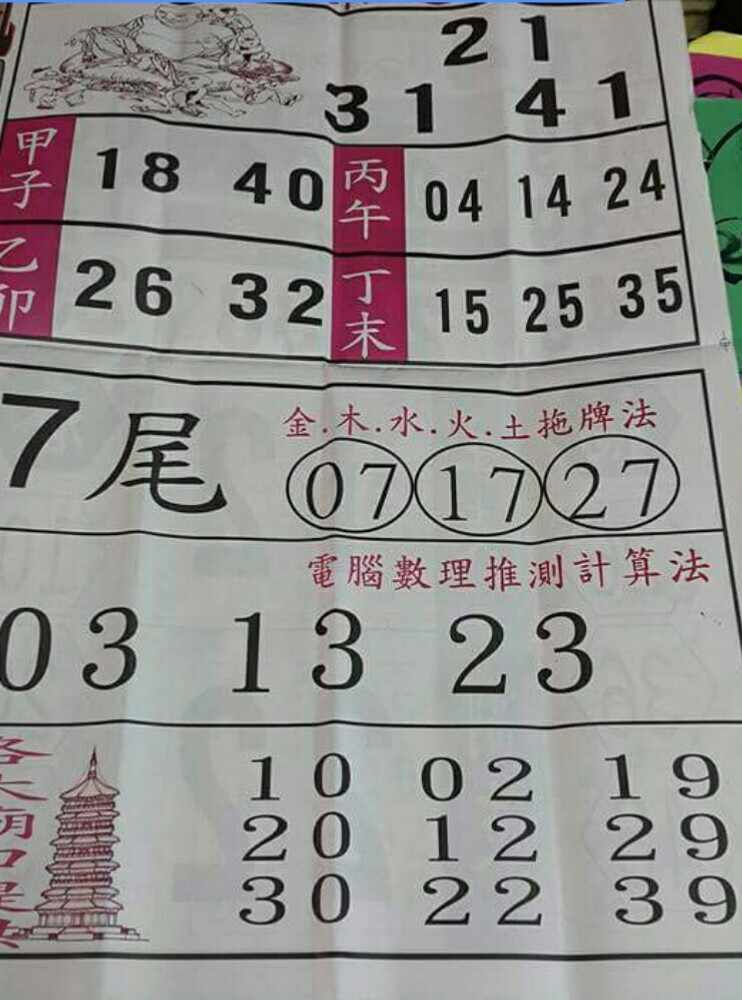 21
31 41
甲子 18 40 丙午 04 14 24
乙卯 26 32 丁末 15 25 35
7尾
金.木.水.火.土拖牌法
07 17 27
電腦數理推測計算法
03 13 23
各大廟口提供
10 02 19
20 12 29
30 22 39